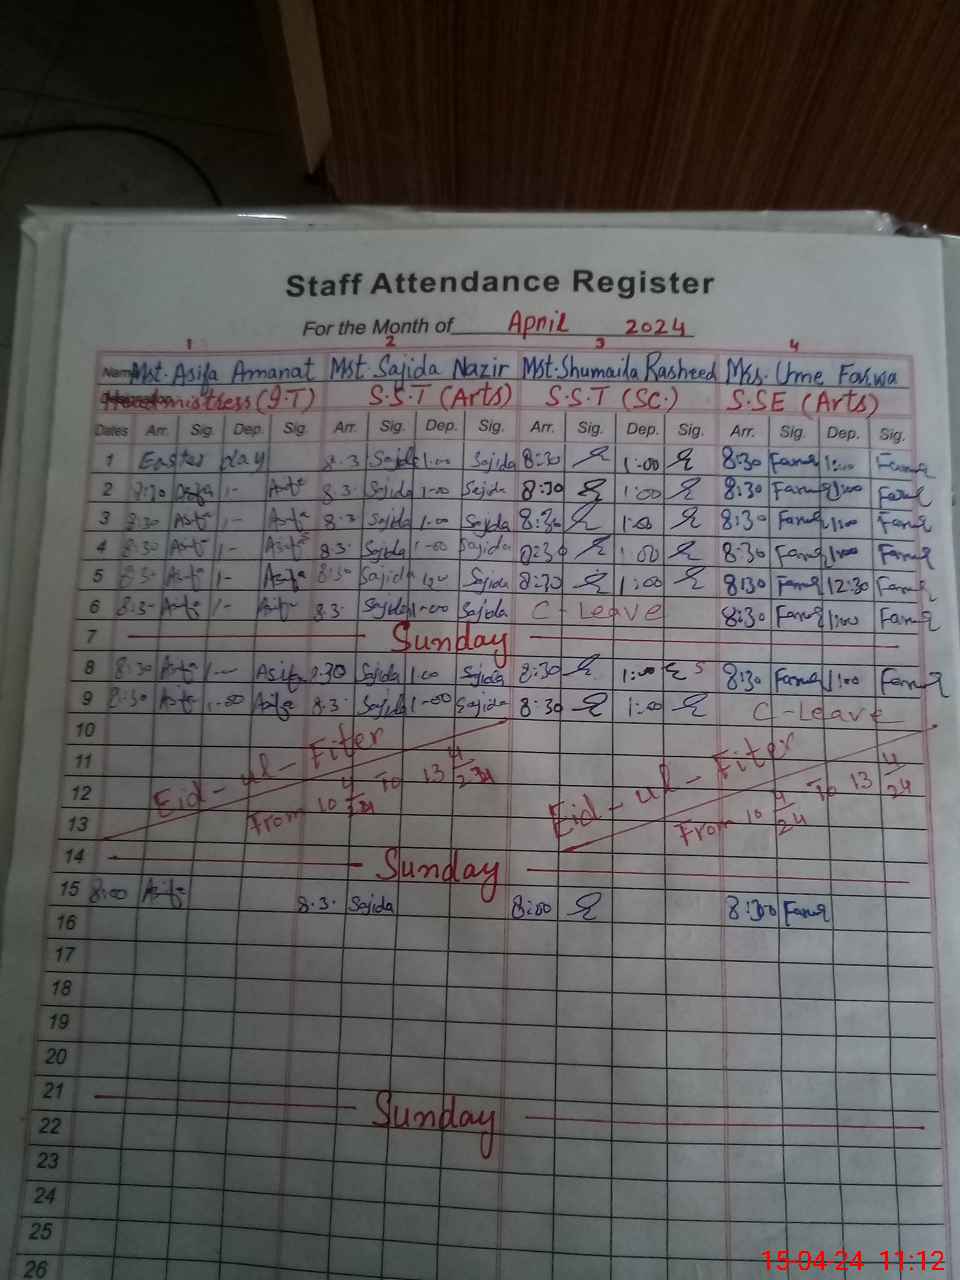 Staff Attendance Register
For the Month of April 2024
1 2 3 4
Name Mst. Asifa Amanat Mst. Sajida Nazir Mst. Shumaila Rasheed Mss. Ume Farwa
mistress (I.T) S.S.T (Arts) S.S.T (SC.) S.SE (Arts)
Dates Arr. Sig. Dep. Sig. Arr. Sig. Dep. Sig. Arr. Sig. Dep. Sig. Arr. Sig. Dep. Sig.
1 Easter day 8.3 Sajida 1:00 Sajida 8:30 1:00 8:30 Farwa 1:00 Farwa
2 8:30 Asifa 1- Asifa 8.3. Sajida 1-00 Sajida 8:30 1:00 8:30 Farwa 1:00 Farwa
3 8:30 Asifa 1- Asifa 8.3 Sajida 1.00 Sajida 8:30 1:00 8:30 Farwa 1:00 Farwa
4 8:30 Asifa 1- Asifa 8.3. Sajida 1-00 Sajida 8:30 1:00 8:30 Farwa 1:00 Farwa
5 8:3- Asifa 1- Asifa 8:30 Sajida Sajida 8:30 1:00 8:30 Farwa 12:30 Farwa
6 8:3- Asifa 1- Asifa 8.3. Sajida 1-00 Sajida C-Leave 8:30 Farwa 1:00 Farwa
7 Sunday
8 8:30 Asifa 1-- Asifa 8.30 Sajida 1.00 Sajida 8:30 1:00 8:30 Farwa 1:00 Farwa
9 8:30 Asifa 1-00 Asifa 8.3. Sajida 1-00 Sajida 8:30 1:00 C-Leave
10
11 Eid-ul-Fiter Eid-ul-Fiter
12 From 10 4/24 To 13 4/24 From 10 4/24 To 13 4/24
13
14 Sunday
15 8:00 Asifa 8.3. Sajida 8:00 8:00 Farwa
16
17
18
19
20
21 Sunday
22
23
24
25
26
15-04-24 11:12